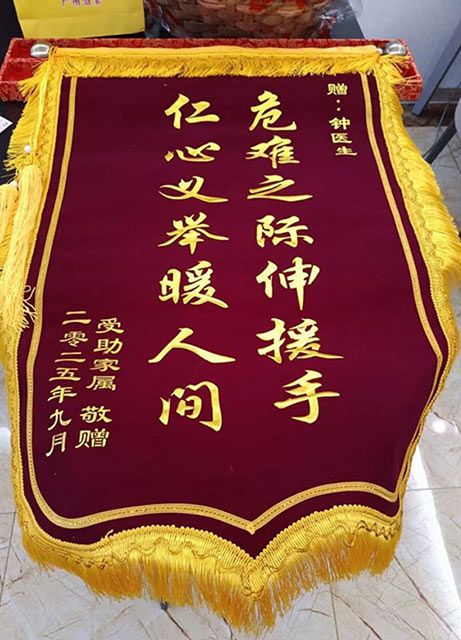 赠：钟医生
危难之际伸援手
仁心义举暖人间
受助家属 敬赠
二零二五年九月